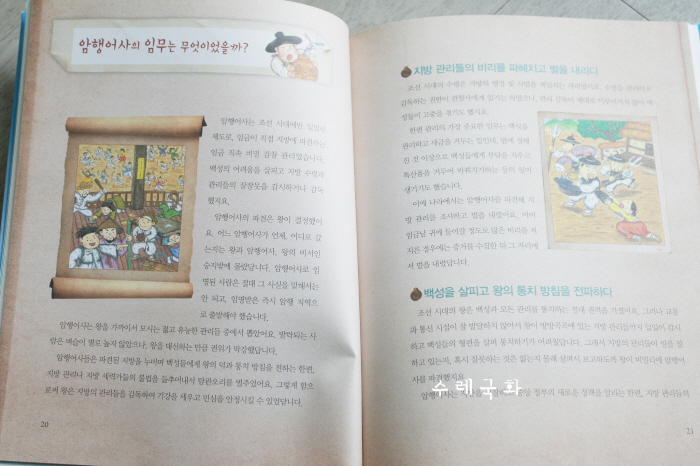 암행어사의 임무는 무엇이었을까?
암행어사는 조선 시대에만 있었던
제도로, 임금이 직접 지방에 파견하는
임금 직속 비밀 감찰 관리였습니다.
백성의 어려움을 살피고 지방 수령과
관리들의 잘잘못을 감시하거나 감독
했지요.
암행어사의 파견은 왕이 결정했어
요. 어느 암행어사가 언제, 어디로 갔
는지는 왕과 암행어사, 왕의 비서인
승지밖에 몰랐답니다. 암행어사로 임
명된 사람은 절대 그 사실을 말해서는
안 되고, 임명받은 즉시 암행 지역으
로 출발해야 했습니다.
암행어사는 왕을 가까이서 모시는 젊고 유능한 관리들 중에서 뽑았어요. 발탁되는 사
람은 벼슬이 별로 높지 않았으나, 왕을 대신하는 만큼 권위가 막강했답니다.
암행어사들은 파견된 지방을 누비며 백성들에게 왕의 덕과 통치 방침을 전하는 한편,
지방 관리나 지방 세력가들의 불법을 들추어내서 탐관오리를 벌주었어요. 그렇게 함으
로써 왕은 지방의 관리들을 감독하여 기강을 세우고 민심을 안정시킬 수 있었답니다.
20
지방 관리들의 비리를 파헤치고 벌을 내리다
조선 시대의 수령은 지방의 행정 및 사법을 책임지는 자리였지요. 수령을 관리하고
감독하는 권한이 관찰사에게 있기는 하였으나, 관리 감독이 제대로 이루어지지 않아 백
성들이 고충을 겪기도 했지요.
한편 관리의 가장 중요한 임무는 백성을
관리하고 세금을 거두는 일인데, 법에 정해
진 것 이상으로 백성들에게 부담을 지우고
특산물을 거두어 바쳐지기까지 하는 일이
생기기도 했습니다.
이에 나라에서는 암행어사를 파견해 지
방 관리를 조사하고 벌을 내렸어요.
임금님 귀에 들어갈 정도로 많은 비리를 저
지른 경우에는 증거를 수집한 뒤 그 자리에
서 벌을 내렸답니다.
백성을 살피고 왕의 통치 방침을 전파하다
조선 시대의 왕은 백성과 모든 관리를 통치하는 절대 권력을 가졌어요. 그러나 교통
과 통신 시설이 잘 발달하지 않아서 왕이 방방곡곡에 있는 지방 관리들까지 일일이 감시
하고 백성들의 형편을 살펴 통치하기가 어려웠습니다. 그래서 지방의 관리들이 일을 잘
하고 있는지, 혹시 잘못하는 것은 없는지 몰래 살펴서 보고하도록 왕이 비밀리에 암행어
사를 파견했지요.
암행어사는 지방을 정부의 새로운 정책을 알리는 한편, 지방 관리들의
21
수레국화